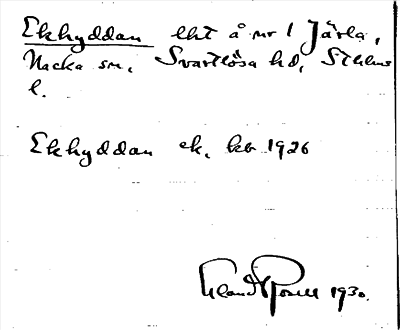 Ekhyddan lht å nr 1 Järla,
Nacka sn, Svartlösa hd, Sthlms
l.
Ekhyddan ek. kb 1926
1930.